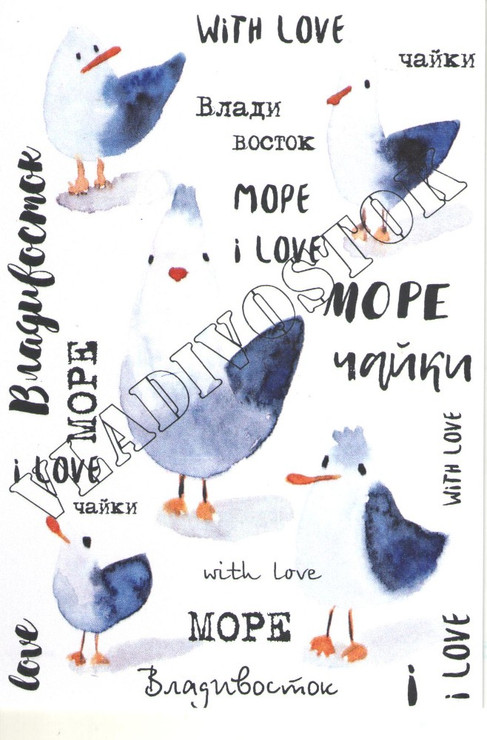 WiTH LOVE
чайки
Влади
восток
МОРЕ
i LOVE
Владивосток
МОРЕ
чайки
МОРЕ
i LOVE
VLADIVOSTOK
WiTH LOVE
чайки
with love
МОРЕ
love
Владивосток
i
i LOVE